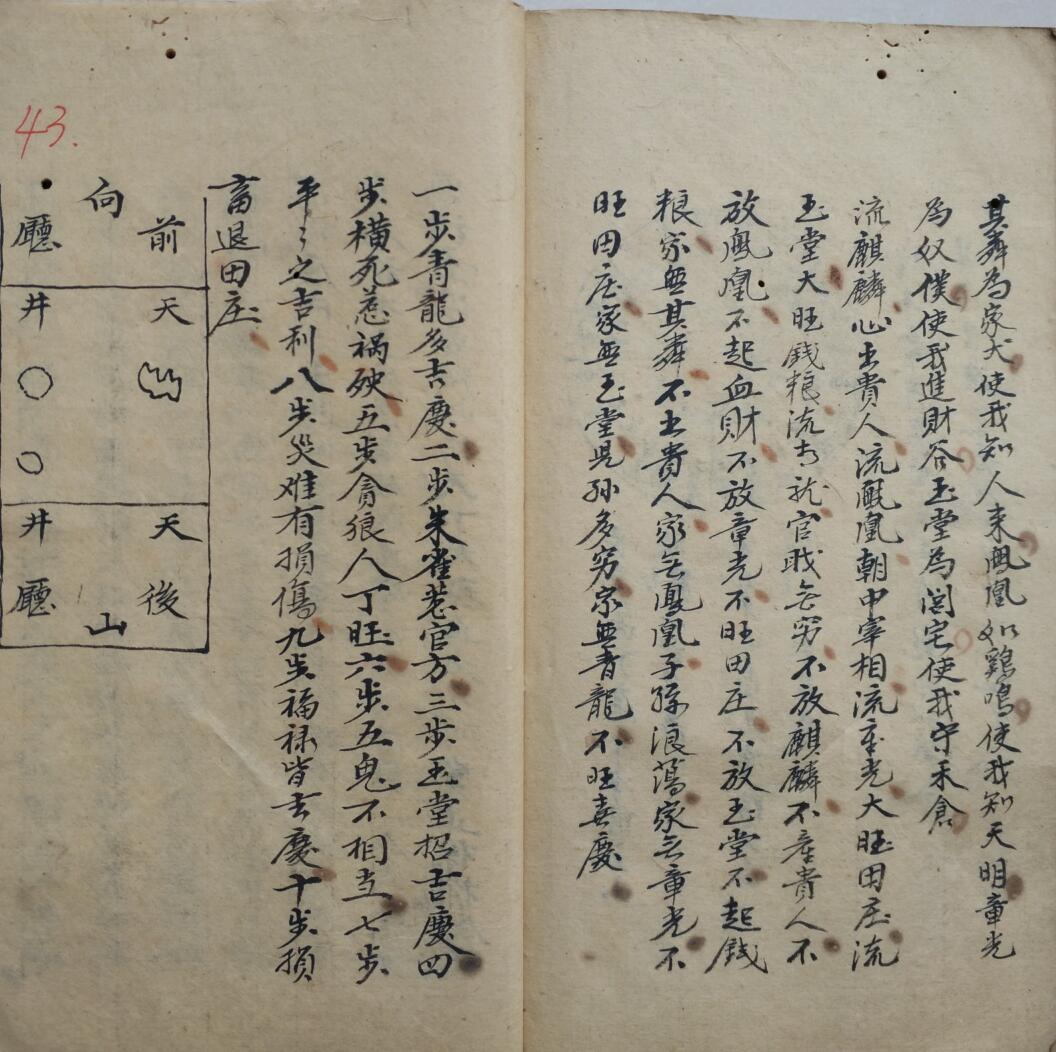 其粦為家犬使我知人来鳳凰如鷄鳴使我知天明章光
為奴僕使我進財谷玉堂為図宅使我守禾倉
流麒麟心出貴人流鳳凰朝中宰相流章光大旺田庄流
玉堂大旺錢粮流去就官戝無穷不放麒麟不産貴人不
放鳳凰不起血財不放章光不旺田庄不放玉堂不起錢
粮家無其粦不出貴人家无鳳凰子孫浪蕩家无章光不
旺田庄家無玉堂児孙多穷家無青龍不旺喜慶
一步青龍多吉慶二步朱雀惹官方三步玉堂招吉慶四
步横死惹禍殃五步貪狼人丁旺六步五鬼不相立七步
平々之吉利八步災难有損傷九步福禄皆吉慶十步損
畜退田庄
43.
向
前廳
天井
天井
後廳
山